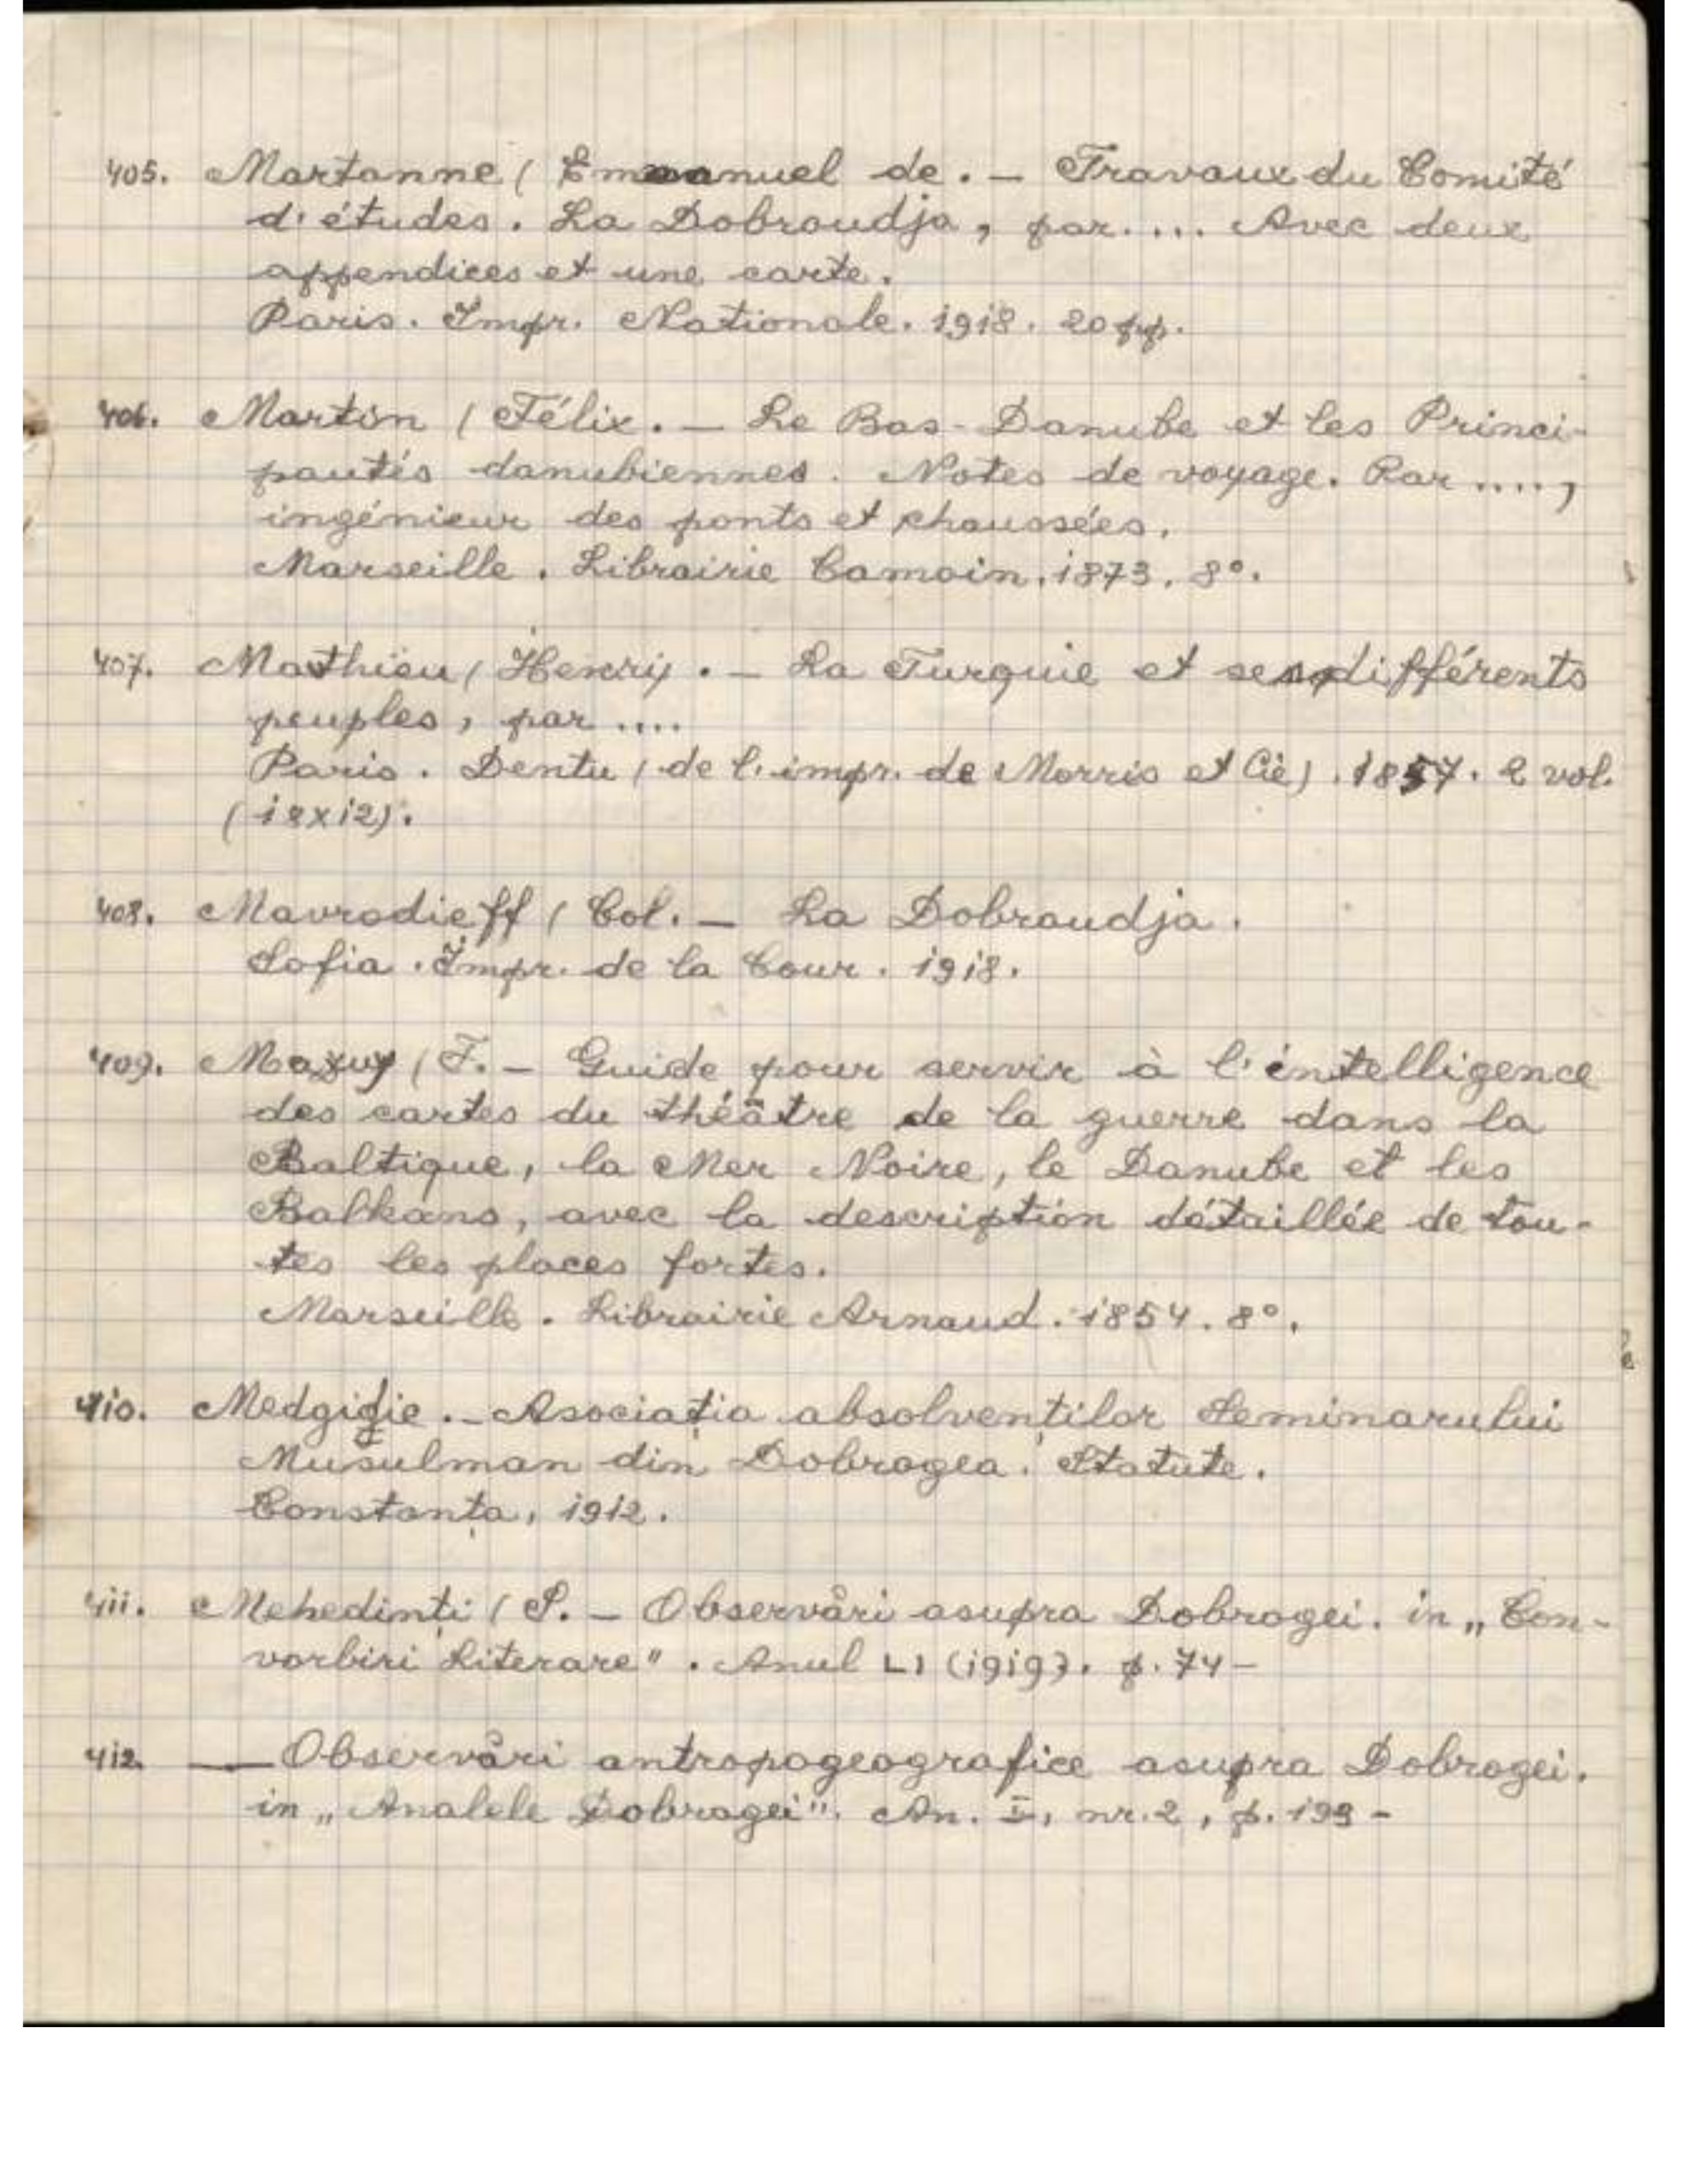 405. Martonne ( Emmanuel de. — Travaux du Comité
d'études. La Dobroudja, par.... Avec deux
appendices et une carte.
Paris. Impr. Nationale. 1918. 20 pp.
406. Martin ( Félix. — Le Bas-Danube et les Princi-
pautés danubiennes. Notes de voyage. Par ....,
ingénieur des ponts et chaussées.
Marseille. Librairie Camoin. 1873. 8°.
407. Mathieu ( Henri). — La Turquie et ses différents
peuples, par ....
Paris. Dentu ( de l'impr. de Morris et Cie). 1857. 2 vol.
(18x12).
408. Mavrodieff ( Col. — La Dobroudja.
Sofia. Impr. de la Cour. 1918.
409. Mazuy ( F. — Guide pour servir à l'intelligence
des cartes du théâtre de la guerre dans la
Baltique, la Mer Noire, le Danube et les
Balkans, avec la description détaillée de tou-
tes les places fortes.
Marseille. Librairie Arnaud. 1854. 8°.
410. Medgidie. — Asociația absolvenților Seminarului
Musulman din Dobrogea. Statute.
Constanța, 1912.
411. Mehedinți ( S. — Observări asupra Dobrogei. in „Con-
vorbiri Literare". Anul LI (1919). p. 74 —
412. — Observări antropogeografice asupra Dobrogei.
in „Analele Dobrogei". An. I, nr. 2, p. 199 —